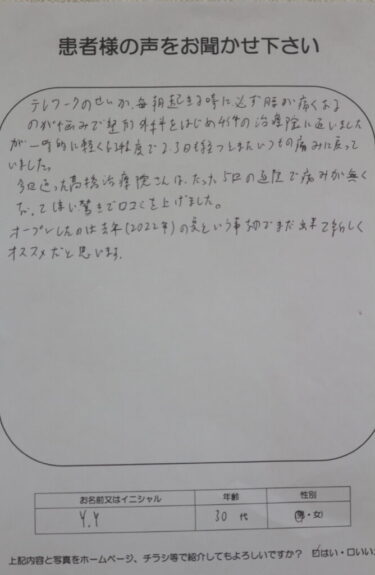 患者様の声をお聞かせ下さい
テレワークのせいか、毎朝起きる時に必ず腰が痛くなる
のが悩みで整形外科をはじめ4件の治療院に通いました
が一時的に軽くなる程度で2.3日も経つとまたいつもの痛みに戻って
いました。
今回通った高橋治療院さんは、たった5回の通院で痛みが無く
なって凄い驚きで口コミを上げました。
オープンしたのは去年(2022年)の夏という事なのでまだ出来て新しく
オススメだと思います。
お名前又はイニシャル 年齢 性別
Y.Y 30代 男・女
上記内容と写真をホームページ、チラシ等で紹介してもよろしいですか? ☑はい・□いい